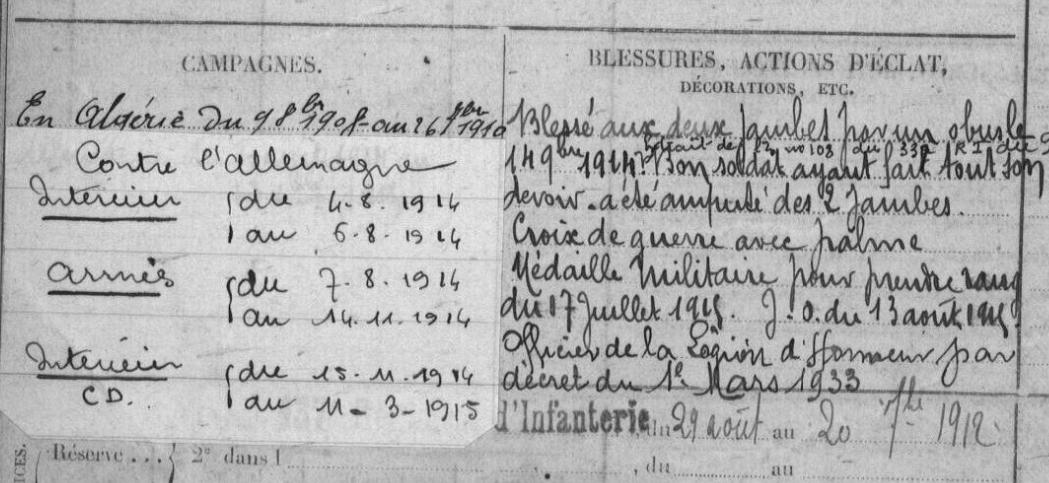 CAMPAGNES.
En Algérie du 9 8bre 1908 au 26 1910
Contre l'allemagne
Intérieur du 4.8.1914
au 6.8.1914
armées du 7.8.1914
au 14.11.1914
Intérieur du 15.11.1914
C D. au 11-3-1915
BLESSURES, ACTIONS D'ÉCLAT,
DÉCORATIONS, ETC.
Blessé aux deux jambes par un obus le
14 9bre 1914. Extrait de no 108 du R I du
Bon soldat ayant fait tout son
devoir. a été amputé des 2 jambes.
Croix de guerre avec palme
Médaille Militaire pour prendre rang
du 17 Juillet 1915. J.O. du 13 août 1915
Officier de la Légion d'Honneur par
décret du 1er Mars 1933
d'Infanterie, du 29 août au 20 7bre 1912.
Réserve ... 2° dans l
, du au